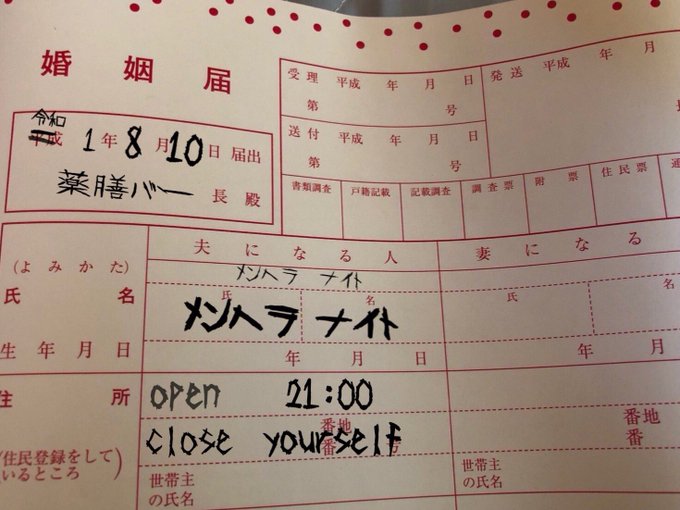 婚姻届
令和
平成 1年 8月 10日 届出
薬膳バー 長 殿
受理 平成 年 月 日
第 号
送付 平成 年 月 日
第 号
発送 平成 年 月
長
書類調査 戸籍記載 記載調査 調査票 附票 住民票 通
(よみかた)
氏名
生年月日
夫になる人
メンヘラ ナイト
氏 名
メンヘラ ナイト
年 月 日
妻になる
氏 名
年 月
住所
open 21:00
番地
close yourself
番 号
番地
番
(住民登録をしているところ)
世帯主の氏名
世帯主の氏名